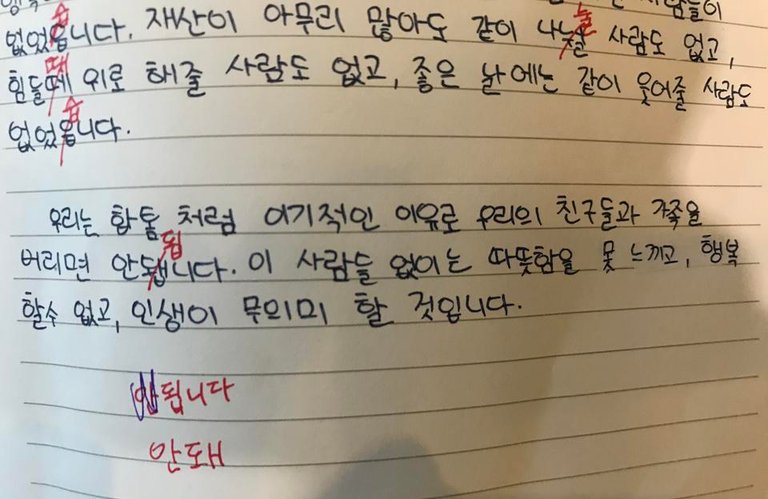 사람들이
습 눌
없었읍니다. 재산이 아무리 많아도 같이 사람도 없고,
때
힘들떼 위로 해줄 사람도 없고, 좋은 날에는 같이 웃어줄 사람도
습
없었읍니다.
우리는 처럼 이기적인 이유로 우리의 친구들과 가족을
됩
버리면 안됍니다. 이 사람들 없이는 따뜻함을 못 느끼고, 행복
할수 없고, 인생이 무의미 할 것입니다.
안됩니다
안돼